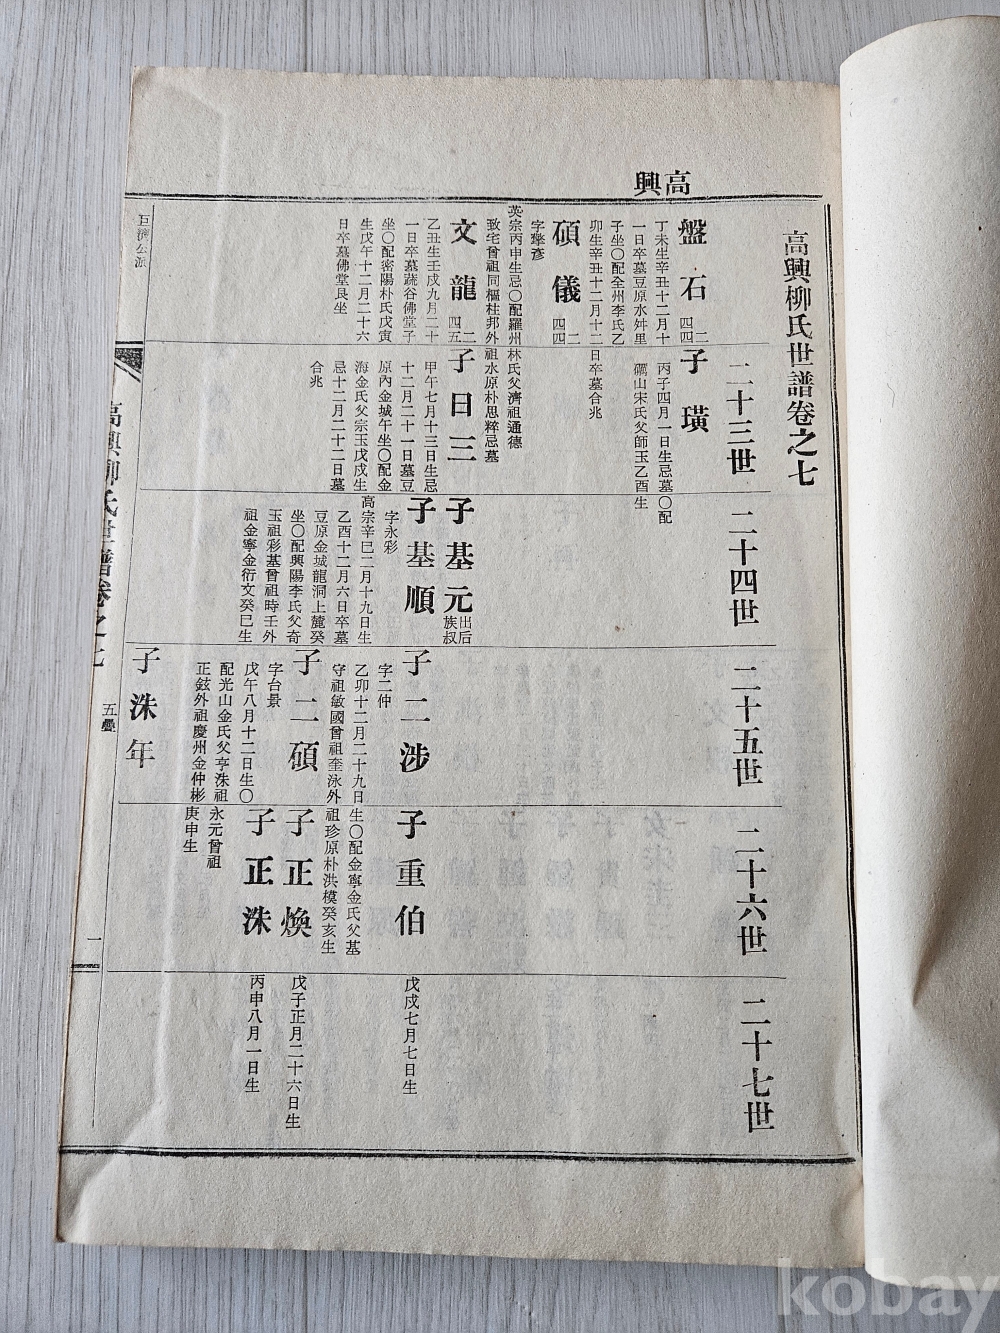 高興
高興柳氏世譜卷之七
二十三世
二十四世
二十五世
二十六世
二十七世
盤石 二四四
丁未生辛丑十二月十
一日卒墓豆原水舛里
子坐○配全州李氏乙
卯生辛丑十二月十二
日卒墓合兆
碩儀 二四四
字擎彥
英宗丙申生忌○配羅州
林氏父濟祖通德
致宅曾祖同樞桂邦外
祖水原朴思粹忌墓
文龍 二四五
乙丑生壬戌九月二十
一日卒墓蔬谷佛堂子
坐○配密陽朴氏戊寅
生戊午十二月二十六
日卒墓佛堂艮坐
子璜
丙子四月一日生忌墓○配
礪山宋氏父師玉乙酉生
子日三
甲午七月十三日生忌
十二月二十一日墓豆
原內金城午坐○配金
海金氏父宗玉戊戌生
忌十二月二十二日墓
合兆
子基元 出后族叔
子基順
字永彩
高宗辛巳二月十九日生
乙酉十二月六日卒墓
豆原金城龍洞上麓癸
坐○配興陽李氏父奇
玉祖彩基曾祖時壬外
祖金寧金衍文癸巳生
子二涉
字二仲
乙卯十二月二十九日
生○配金寧金氏父基
守祖敏國曾祖奎泳外
祖珍原朴洪模癸亥生
子二碩
字台景
戊午八月十二日生○
配光山金氏父亨洙祖
永元曾祖
正鉉外祖慶州金仲彬
庚申生
子洙年
子重伯
戊戌七月七日生
子正煥
戊子正月二十六日生
子正洙
丙申八月一日生
高興柳氏世譜卷之七
五疊
一
kobay